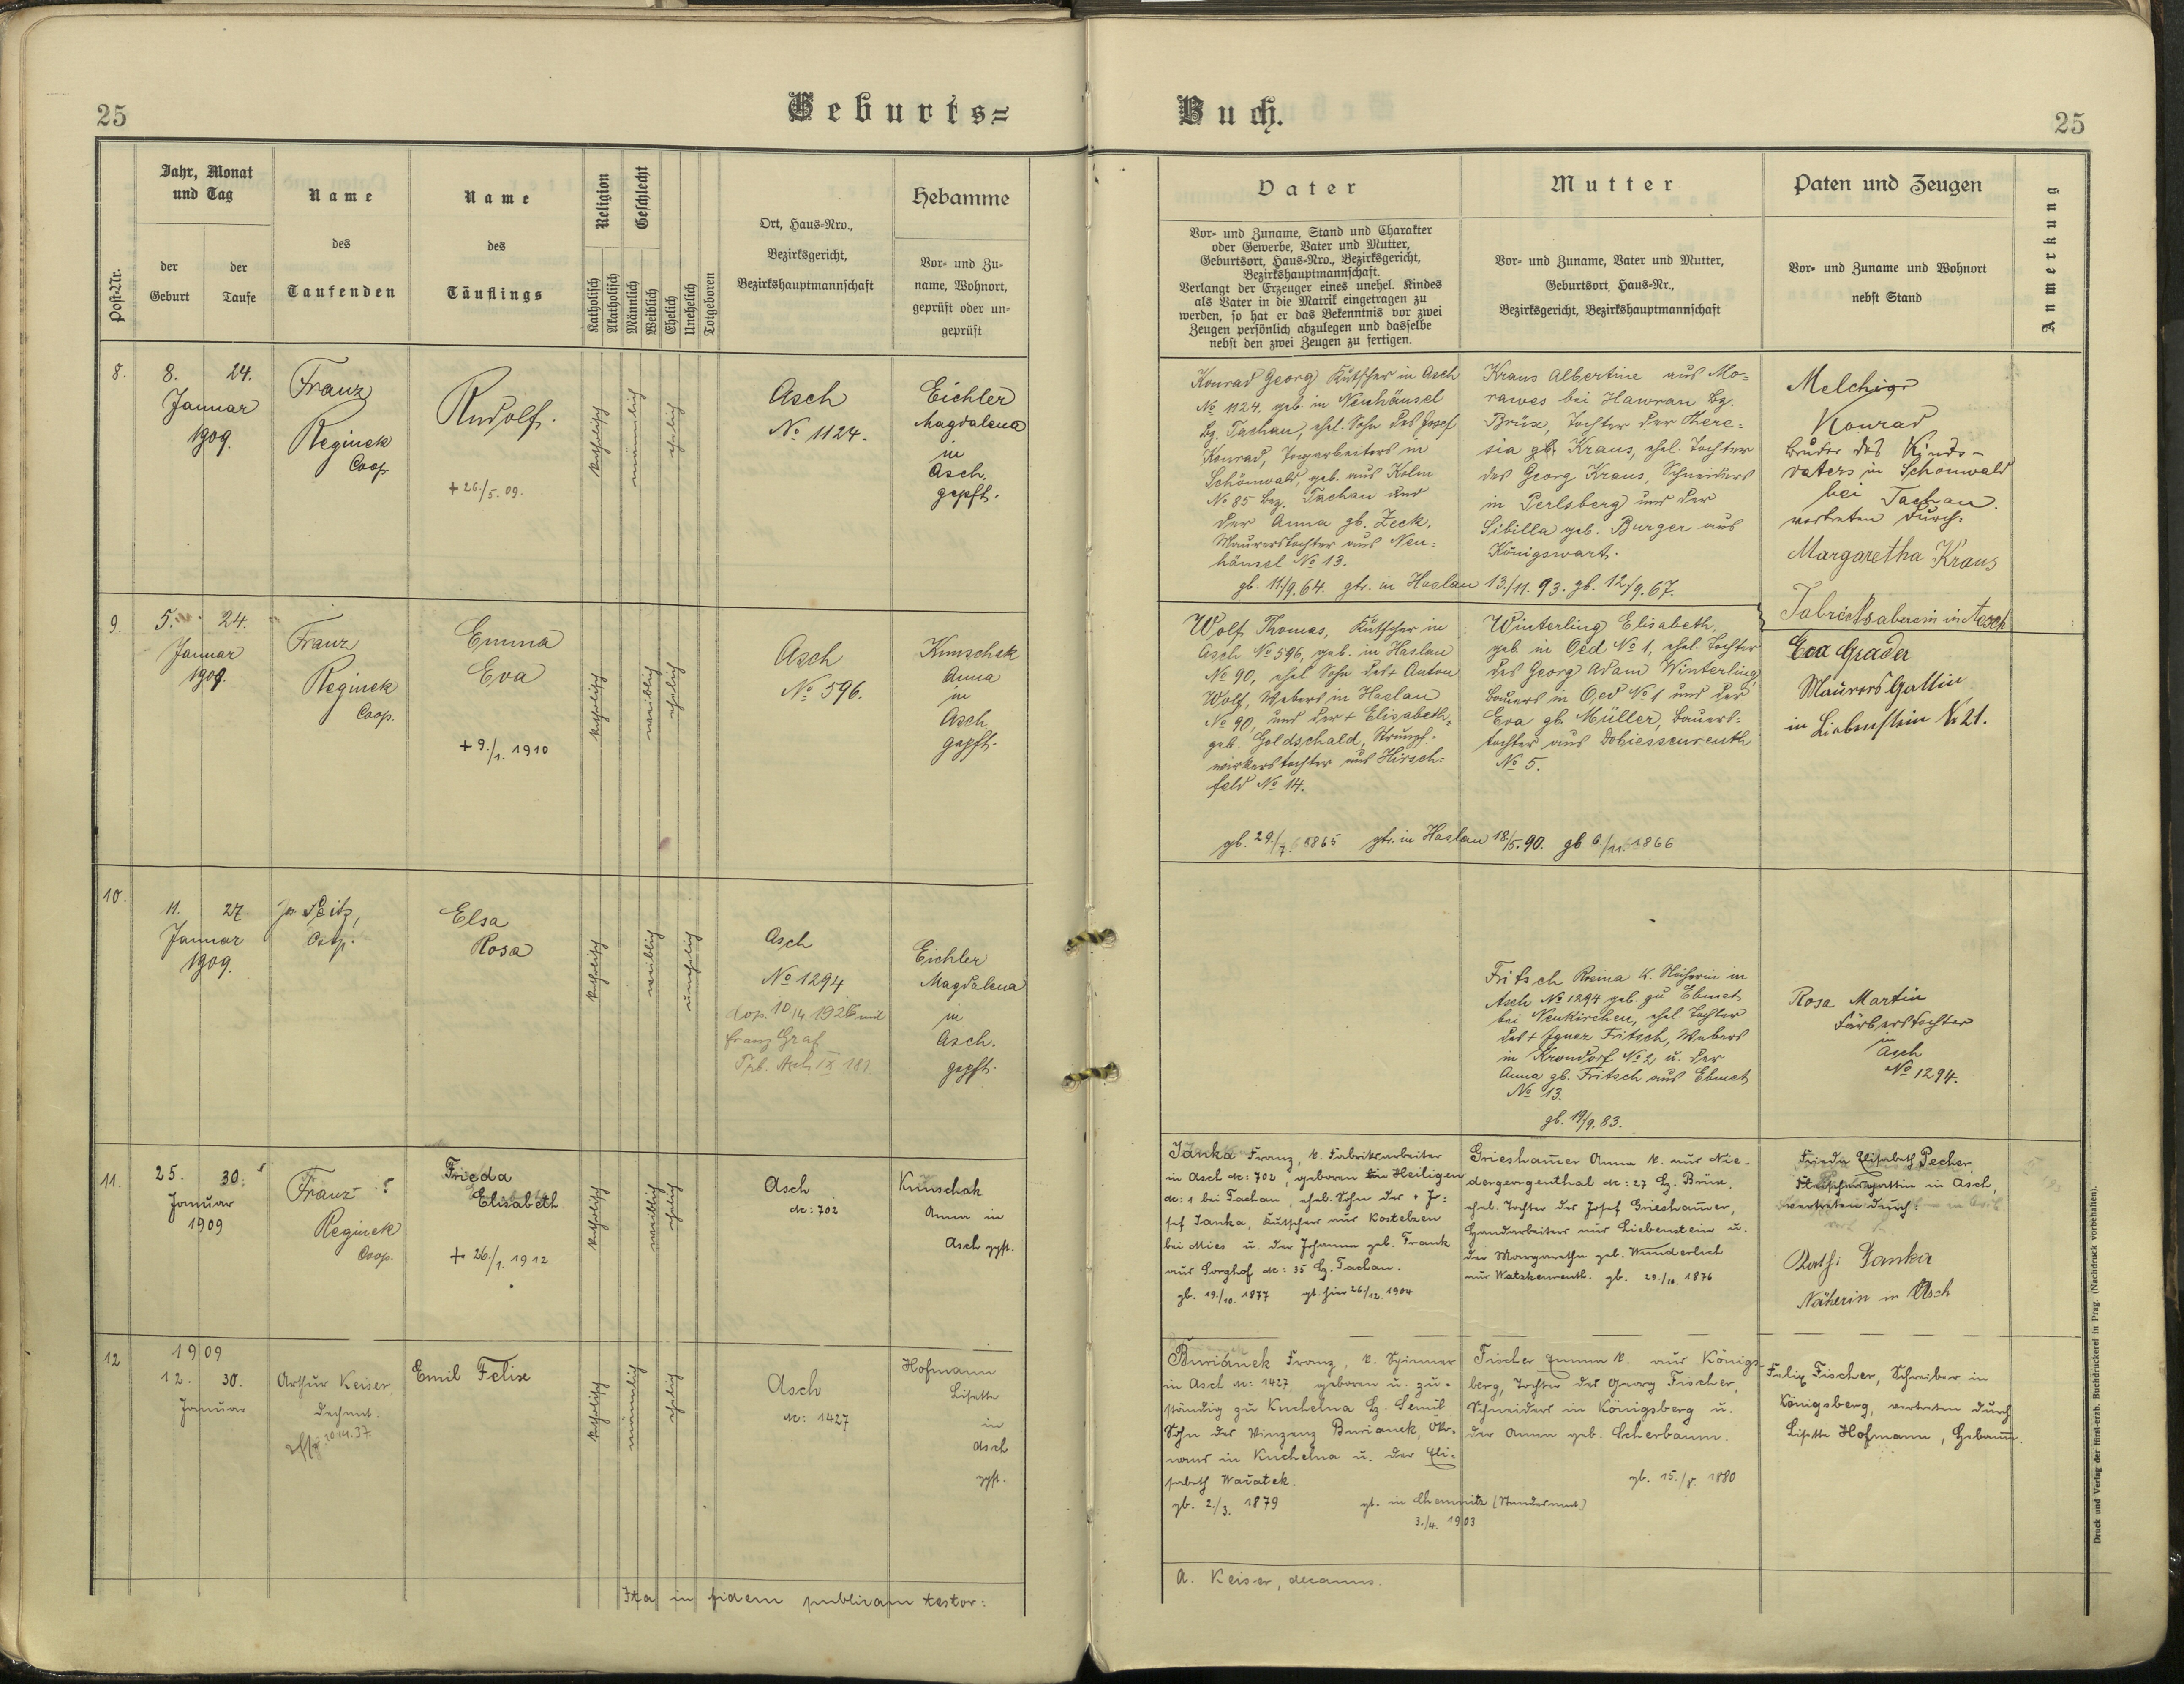 25
Geburts=
Buch.
25
Post-Nr.
Jahr, Monat
und Tag
der
Geburt
der
Taufe
Name
des
Taufenden
Name
des
Täuflings
Religion
Katholisch
Akatholisch
Geschlecht
Männlich
Weiblich
Ehelich
Unehelich
Totgeboren
Ort, Haus-Nro.,
Bezirksgericht,
Bezirkshauptmannschaft
Hebamme
Vor- und Zu-
name, Wohnort,
geprüft oder un-
geprüft
Vater
Vor- und Zuname, Stand und Charakter
oder Gewerbe, Vater und Mutter,
Geburtsort, Haus-Nro., Bezirksgericht,
Bezirkshauptmannschaft.
Verlangt der Erzeuger eines unehel. Kindes
als Vater in die Matrik eingetragen zu
werden, so hat er das Bekenntnis vor zwei
Zeugen persönlich abzulegen und dasselbe
nebst den zwei Zeugen zu fertigen.
Mutter
Vor- und Zuname, Vater und Mutter,
Geburtsort, Haus-Nr.,
Bezirksgericht, Bezirkshauptmannschaft
Paten und Zeugen
Vor- und Zuname und Wohnort
nebst Stand
Anmerkung
8.
8. 24.
Januar
1909.
Franz
Reginek
Coop.
Rudolf.
+ 26./5. 09.
katholisch
männlich
ehelich
Asch
No 1124.
Eichler
Magdalena
in
Asch.
gepft.
Konrad Georg Kutscher in Asch
No 1124, geb. in Neuhäusel
Bz. Tachau, ehel. Sohn des Josef
Konrad, Tagarbeiters in
Schönwald, geb. aus Kolm
No 85 Bez. Tachau und
der Anna gb. Zeck,
Maurerstochter aus Neu=
häusel No 13.
gb. 11/9.64. gtr. in Haslau 13./11. 93. gb. 12/9.67.
Kraus Albertine aus Mo=
rawes bei Hawran Bz.
Brüx, Tochter der There=
sia gb. Kraus, ehel. Tochter
des Georg Kraus, Schneiders
in Perlsberg und der
Sibilla geb. Burger aus
Königswart.
Melchior
Konrad
Bruder des Kinds-
vaters in Schönwald
bei Tachau.
vertreten durch:
Margaretha Kraus
Fabriksaberein in Asch
9.
5. 24.
Januar
1909.
Franz
Reginek
Coop.
Emma
Eva
+ 9./1. 1910
katholisch
weiblich
ehelich
Asch
No 596.
Kunschak
Anna
in
Asch
gepft.
Wolf Thomas, Kutscher in
Asch No 596, geb. in Haslau
No 90, ehel. Sohn des + Anton
Wolf, Webers in Haslau
No 90, und der + Elisabeth,
geb. Goldschald, Strumpf=
wirkerstochter aus Hirsch=
feld No 14.
gb. 29./7. 1865 gtr. in Haslau 18./5.90. gb. 6/11. 1866
Winterling Elisabeth,
geb. in Oed No 1, ehel. Tochter
des Georg Adam Winterling
Bauers in Oed No 1 und der
Eva gb. Müller, Bauers=
tochter aus Dobiessenreuth
No 5.
Eva Grader
Maurers Gattin
in Liebenstein No 21.
10.
11. 27.
Januar
1909.
Jos. Peitz,
Coop.
Elsa
Rosa
katholisch
weiblich
unehelich
Asch
No 1294
Cop. 10/4. 1926 mit
Franz Graf
Trb. Asch IX 181
Eichler
Magdalena
in
Asch.
gepft.
Fritsch Rosina k. Näherin in
Asch No 1294 geb. zu Ebmet
bei Neukirchen, ehel. Tochter
des + Ignaz Fritsch, Webers
in Krondorf No 2 u. der
Anna gb. Fritsch aus Ebmet
No 13.
gb. 19/9. 83.
Rosa Martin
Färberstochter
in
Asch
No 1294.
11.
25. 30.
Januar
1909
Franz
Reginek
Coop.
Frieda
Elisabeth
+ 26./1. 1912
katholisch
weiblich
ehelich
Asch
Nr: 702
Kunschak
Anna in
Asch gpft.
Janka Franz, k. Fabriksarbeiter
in Asch Nr: 702, geboren in Heiligen
Nr: 1 bei Tachau, ehel. Sohn des + Jo-
sef Janka, Kutscher aus Kostelzen
bei Mies u. der Johanna geb. Frank
aus Sorghof Nr: 35 Bz. Tachau.
gb. 19./10. 1877 gt. hier 26/12. 1904
Grieshamer Anna k. aus Nie-
dergeorgenthal Nr: 27 Bz. Brüx,
ehel. Tochter des Josef Grieshamer,
Handarbeiter aus Liebenstein u.
der Margaretha geb. Wunderlich
aus Watzkenreuth. gb. 29./10. 1876
Frieda Elisabeth Pecher,
Fleischersgattin in Asch,
vertreten durch:
Kath: Janka
Näherin in Asch
12
1909
12. 30.
Januar
Arthur Keiser
Dechant.
Emil Felix
katholisch
männlich
ehelich
Asch
Nr: 1427
Hofmann
Lisette
in
Asch
gpft.
Buriánek Franz, k. Spinner
in Asch Nr: 1427 geboren u. zu-
ständig zu Kuchelna Bz. Semil
Sohn des Vinzenz Burianek, Öko-
noms in Kuchelna u. der Eli-
sabeth Waiatek.
gb. 2./3. 1879 gt. in Chemnitz (Standesamt)
3./4. 1903
Fischer Emma k. aus Königs-
berg, Tochter des Georg Fischer,
Schneiders in Königsberg u.
der Anna geb. Scherbaum.
gb. 15./8. 1880
Felix Fischer, Schreiber in
Königsberg, vertreten durch
Lisette Hofmann, Hebamm.
Ita in fidem publicam testor:
A. Keiser, decanus.
Druck und Verlag der fürst-erzb. Buchdruckerei in Prag. (Nachdruck vorbehalten).